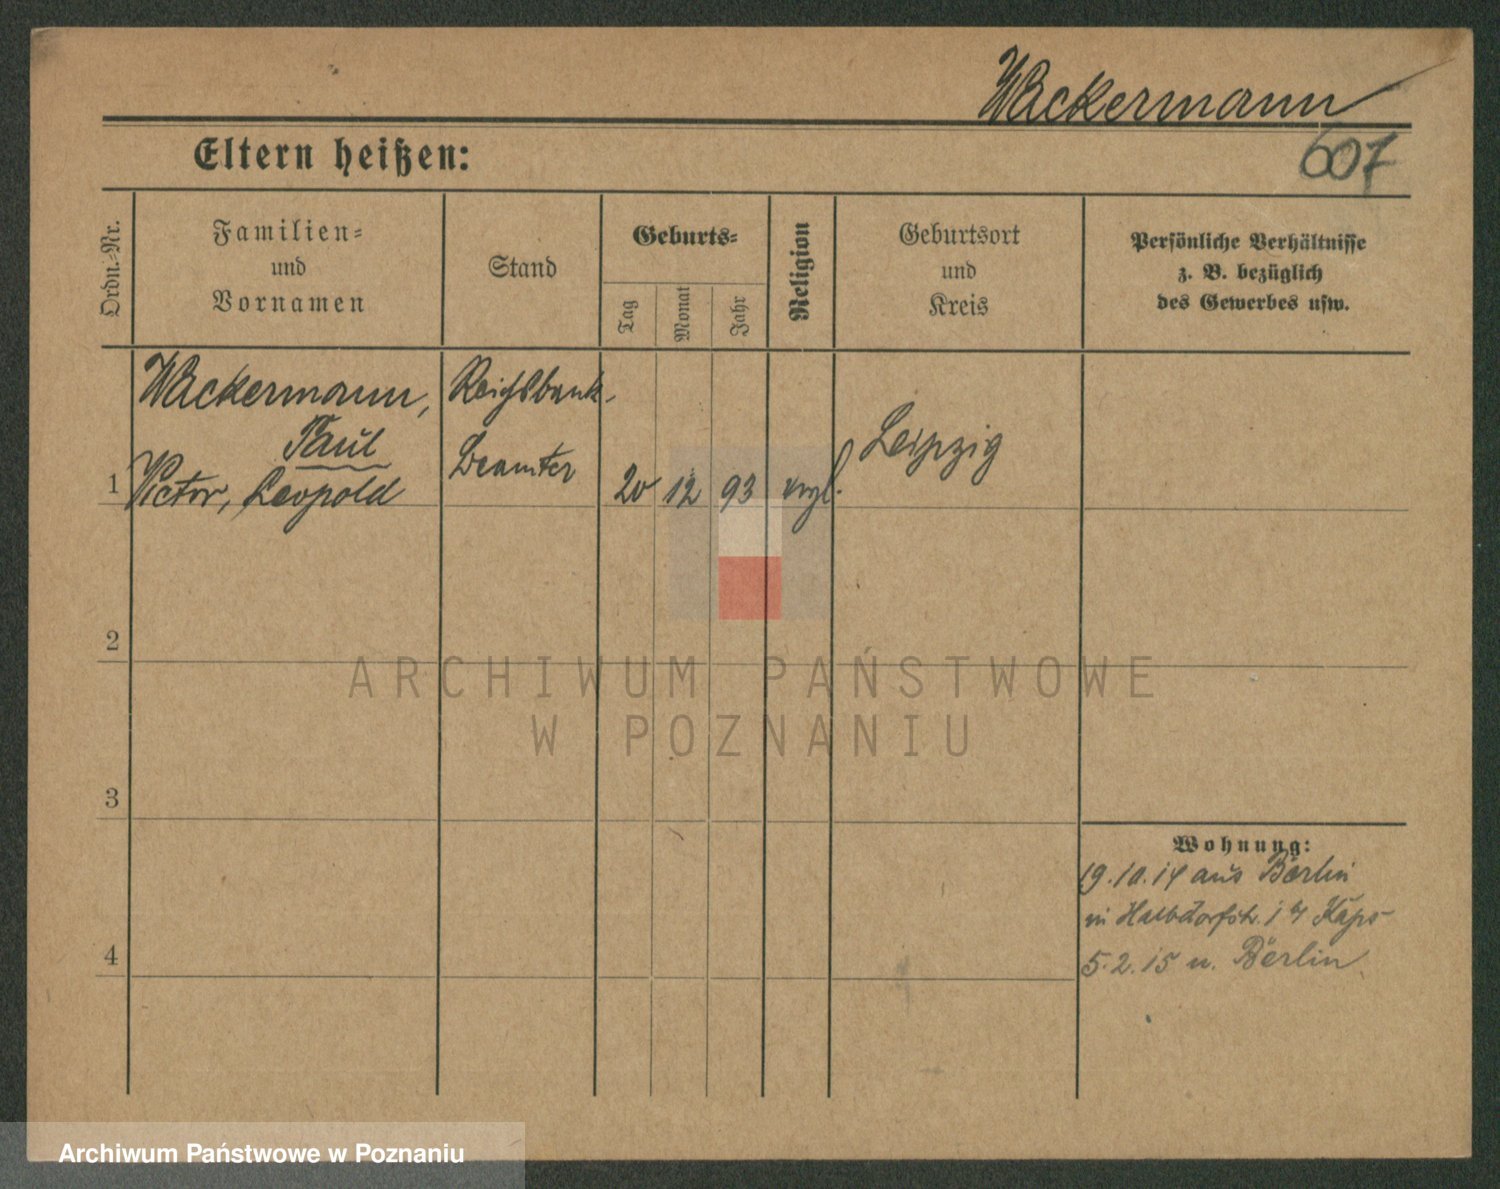 Wackermann
607
Eltern heißen:
Ordn.-Nr.
Familien-
und
Vornamen
Stand
Geburts-
Tag
Monat
Jahr
Religion
Geburtsort
und
Kreis
Persönliche Verhältnisse
z. B. bezüglich
des Gewerbes usw.
Wackermann,
Paul
Victor, Leopold
Reichsbank-
Beamter
1
20 12 93 evgl.
Leipzig
2
ARCHIWUM PAŃSTWOWE
W POZNANIU
3
Wohnung:
19.10.14 aus Berlin
in Halbdorfstr. 14
5.2.15 n. Berlin
4
Archiwum Państwowe w Poznaniu